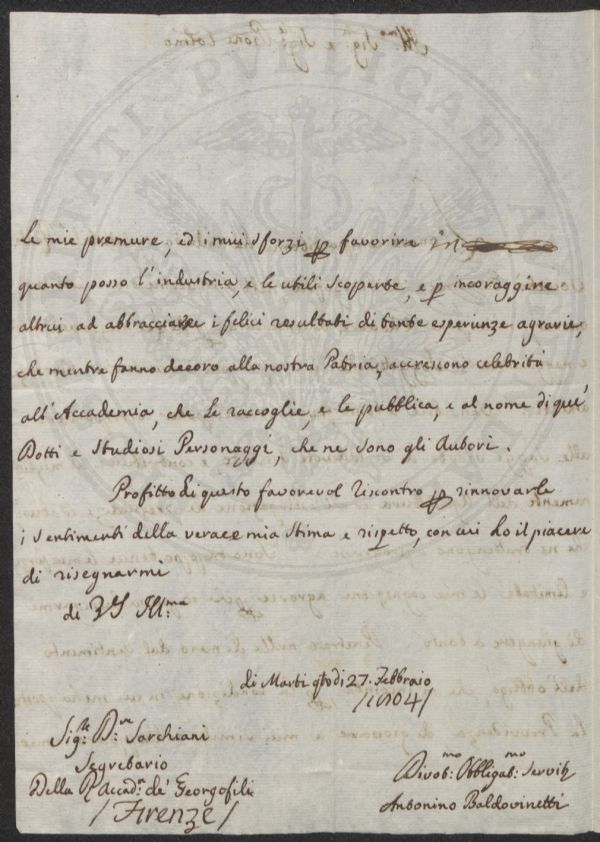 Le mie premure, ed i miei sforzi p favorire in
quanto posso l'industria, e le utili scoperte, e p incoraggire
altrui ad abbracciare i felici resultati di tante esperienze agrarie,
che mentre fanno decoro alla nostra Patria, accrescono celebrità
all'Accademia, che Le raccoglie, e le pubblica, e al nome di que'
Dotti e Studiosi Personaggi, che ne sono gli Autori.
Profitto di questo favorevol riscontro p rinnovarle
i sentimenti della verace mia stima e rispetto, con cui ho il piacere
di risegnarmi
di VS Ill:ma
di Marti qto di 27. Febbraio
/1804/
Sig:re D:re Sarchiani
Segretario
Della R Accad:a de' Georgofili
/Firenze/
Divot:mo Obbligat:mo Servit:
Antonino Baldovinetti